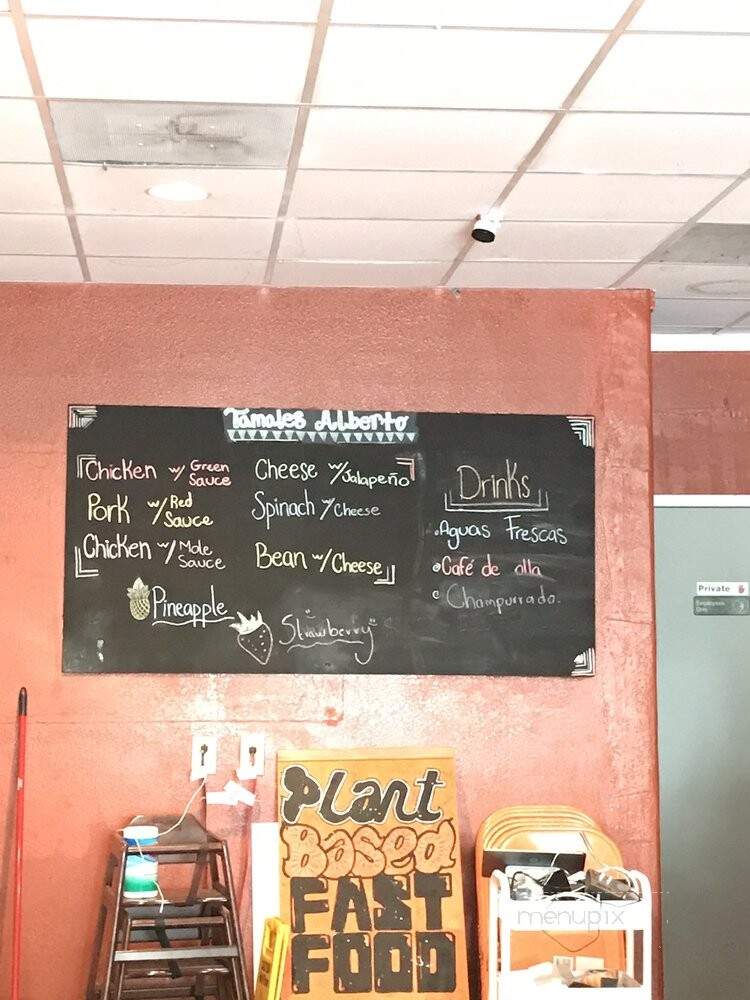 Tamales Alberto
Chicken w/ Green Sauce
Pork w/ Red Sauce
Chicken w/ Mole Sauce
Pineapple
Cheese w/ Jalapeño
Spinach w/ Cheese
Bean w/ Cheese
"Strawberry"
Drinks
Aguas Frescas
Café de olla
Champurrado.
Private
Employees Only
Plant
Based
FAST
FOOD
menupix